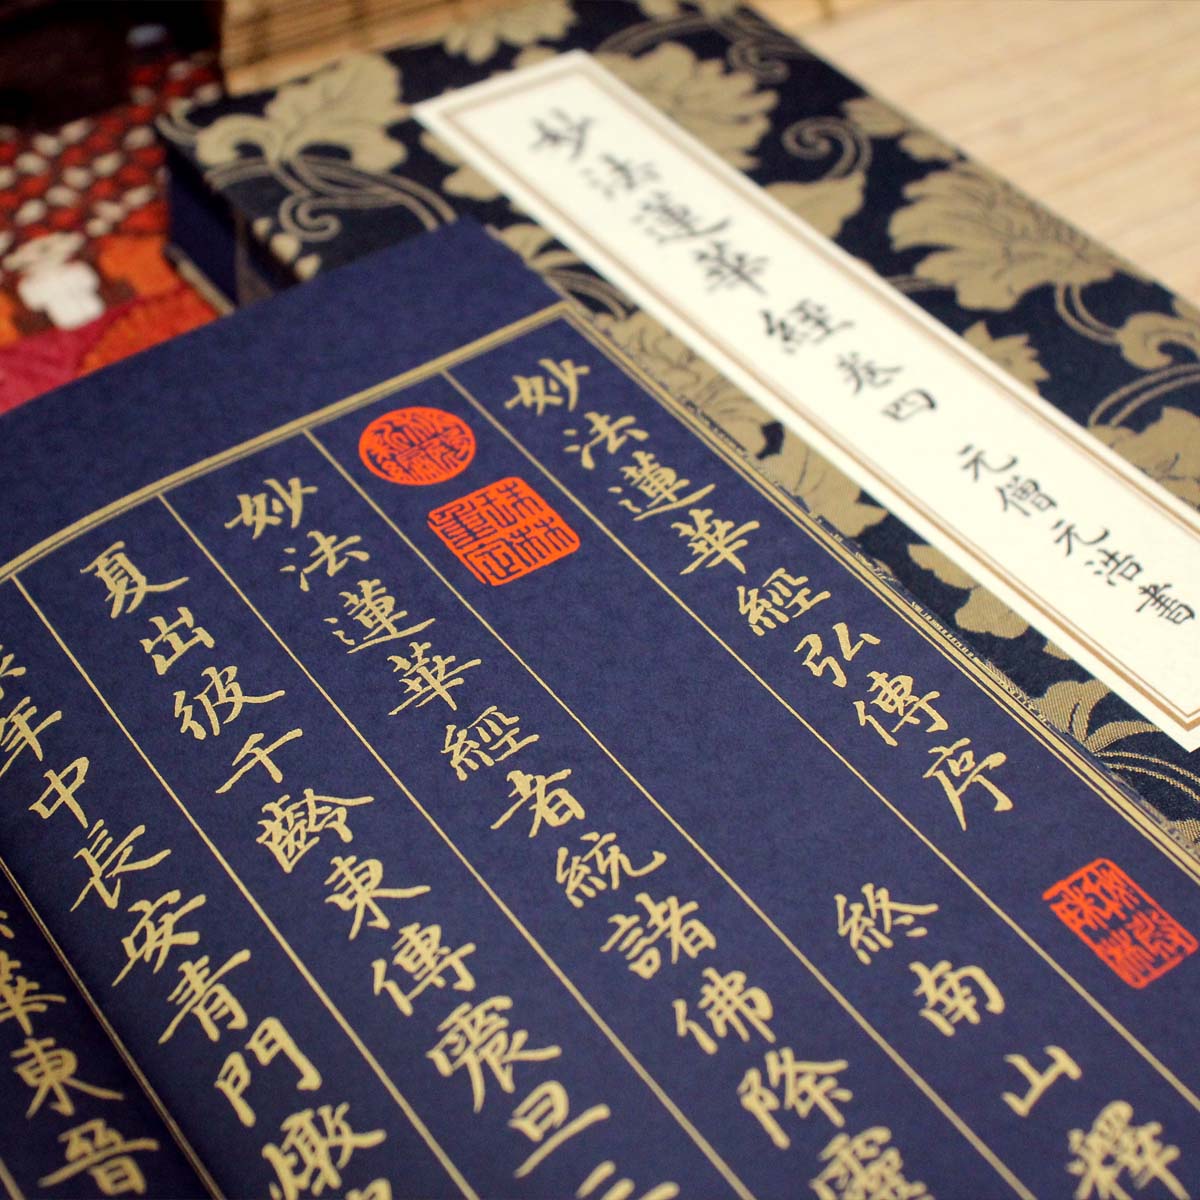 妙法蓮華經卷四 元僧元浩書
妙法蓮華經弘傳序
終南山釋
妙法蓮華經者統諸佛降靈
夏出彼千齡東傳震旦三
年中長安青門燉
華東晉